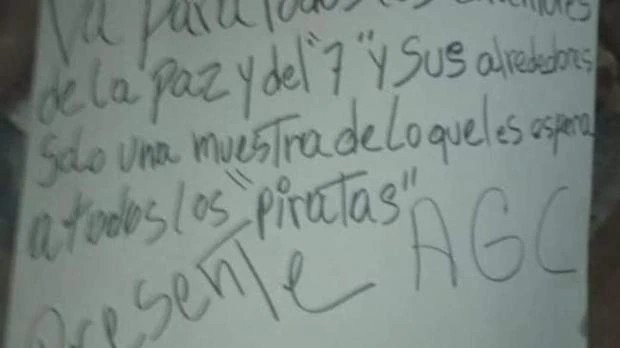 Va para todos los
de la paz y del "7" y sus alrededores
solo una muestra de lo que les espera
a todos los "piratas"
Presente AGC